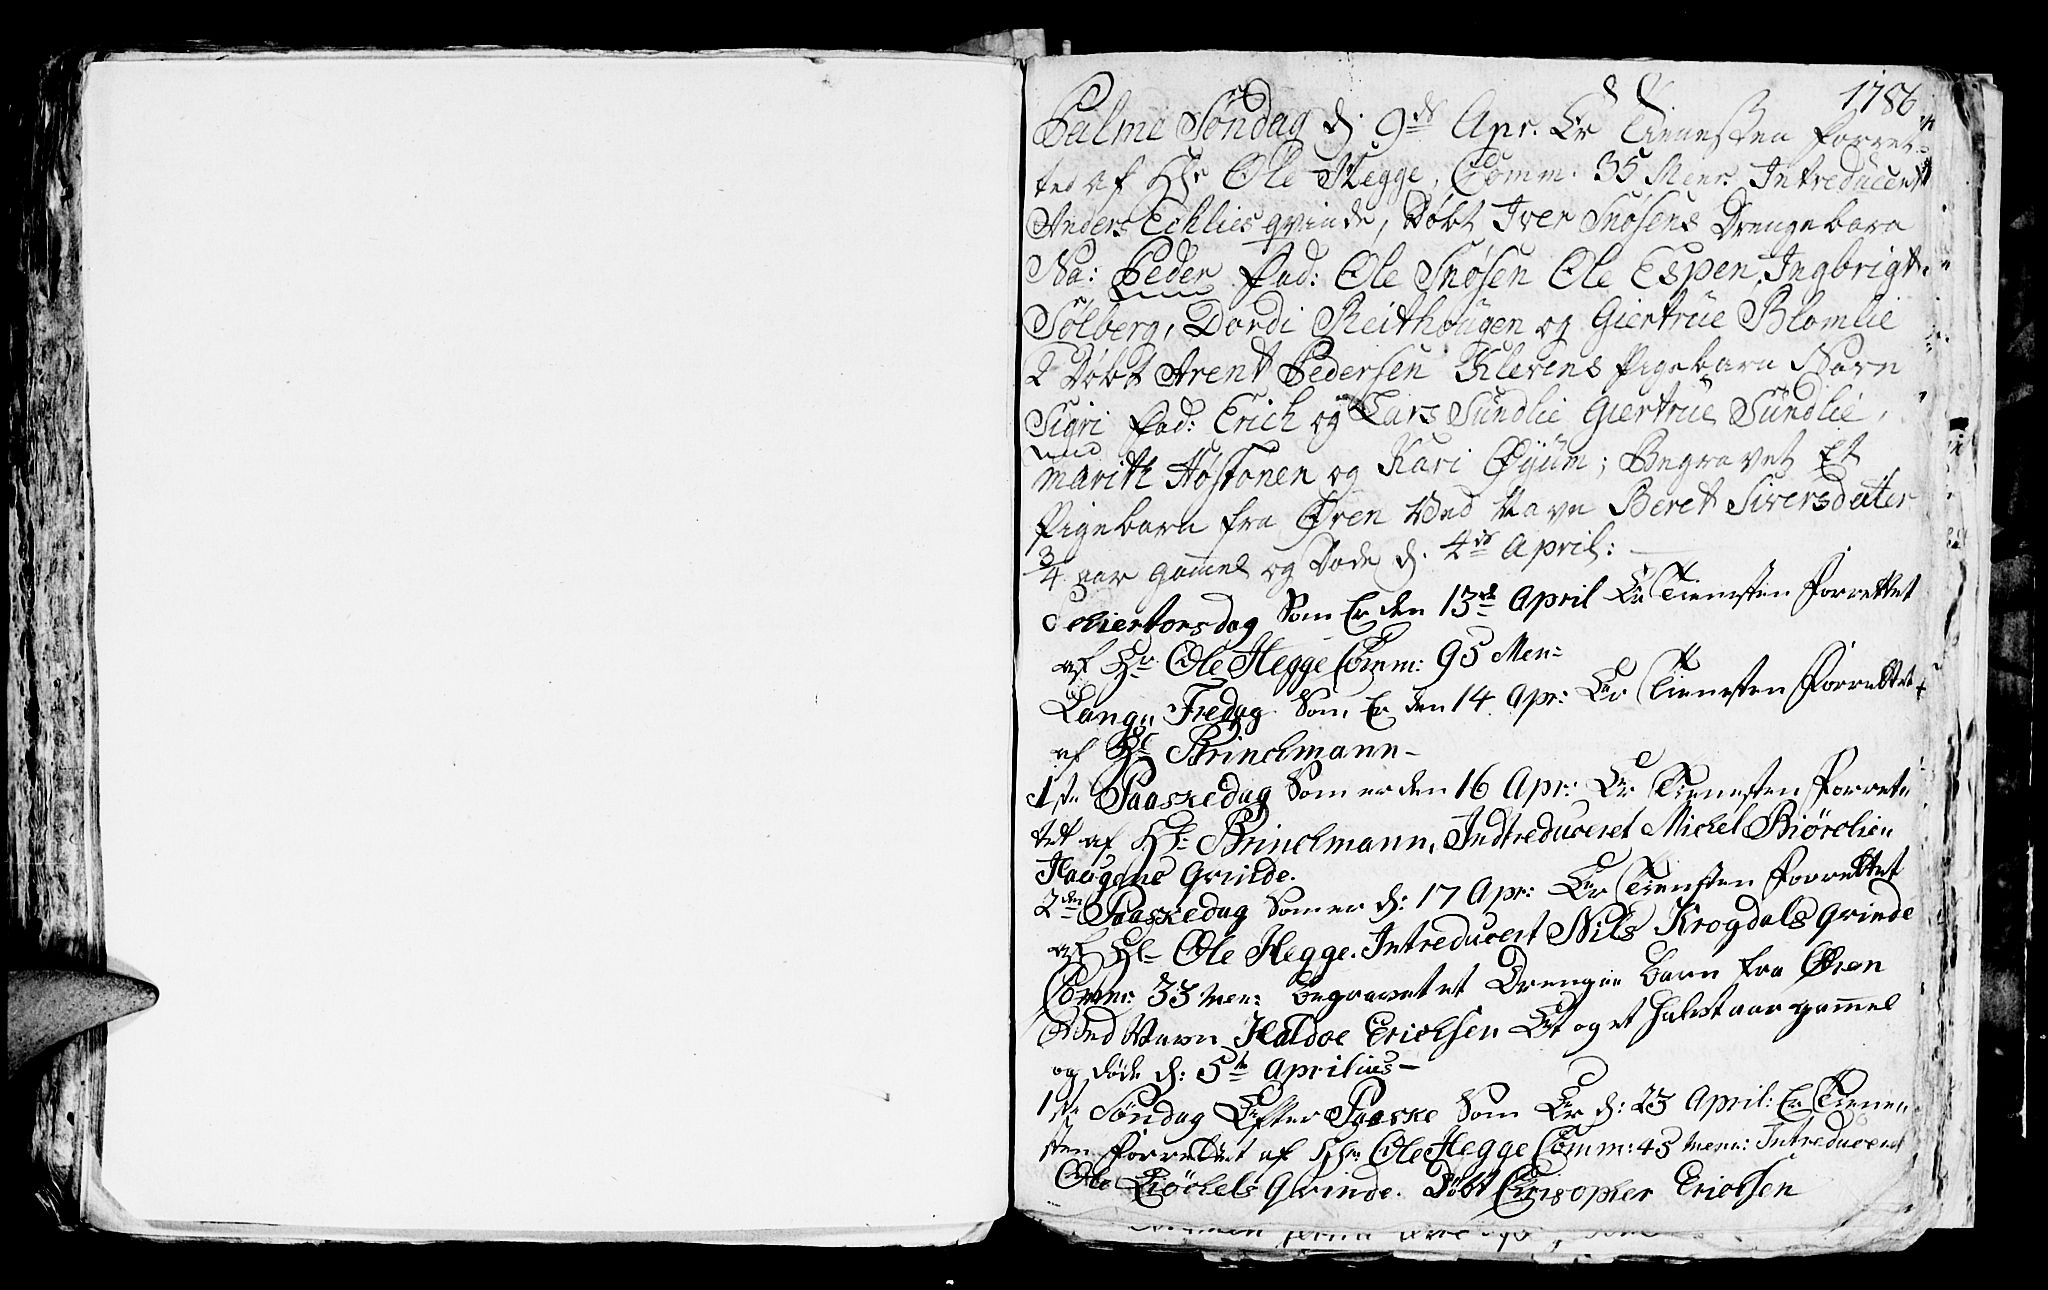 1786
Palme Søndag d. 9de Apr. Er Tienesten forret-
ted af Hr. Ole Hegge, Comm. 35 Menr. Intreduceret
Anders Echlies qvinde, Døbt Iver Snøsens Drengebarn
Na: Peder Fad: Ole Snøsen Ole Espen, Ingbrigt
Solberg, Dordi Reithougen og Giertrüe Blomlie
2 Døbt Arent Pedersen Klevens Pigebarn Navn
Sigri Fad: Erich og Lars Sündlie Giertrüe Sündlie,
Marith Høstonen og Kari Øyüm; Begravet Et
Pigebarn fra Øren Ved Navn Beret Siversdater
3/4 aar gamel og Døde d. 4de April:
Schiertorsdag Som Er den 13de April Er Tienesten Forrettet
af Hr. Ole Hegge Comm: 95 Men:
Lang Fredag Som Er den 14 Apr: Er Tienesten Forrettet
af Hr Brinchmann –
1ste Paaskedag Som er den 16 Apr: Er Tienesten Forret-
tet af Hr: Brinchmann, Indtreduceret Michel Biørchlien
Haugens Qvinde.
2den Paaskedag Som er d: 17 Apr: Er Tiensten Forrettet
af Hr Ole Hegge. Intreducert Nils Krogdals Qvinde
Comm: 33 Men: begravet et Drenge barn fra Øren
Ved Navn Haldoe Erichsen Et og et halvt aar gammel
og døde d: 5te Aprilius –
1ste Søndag Efter Paaske Som Er d: 23 April: Er Tienen-
sten Forrettet af Hr. Ole Hegge Comm: 43 Menr: Intreduceret
Ole Qvinde. Døbt Chrisopher Erichsen